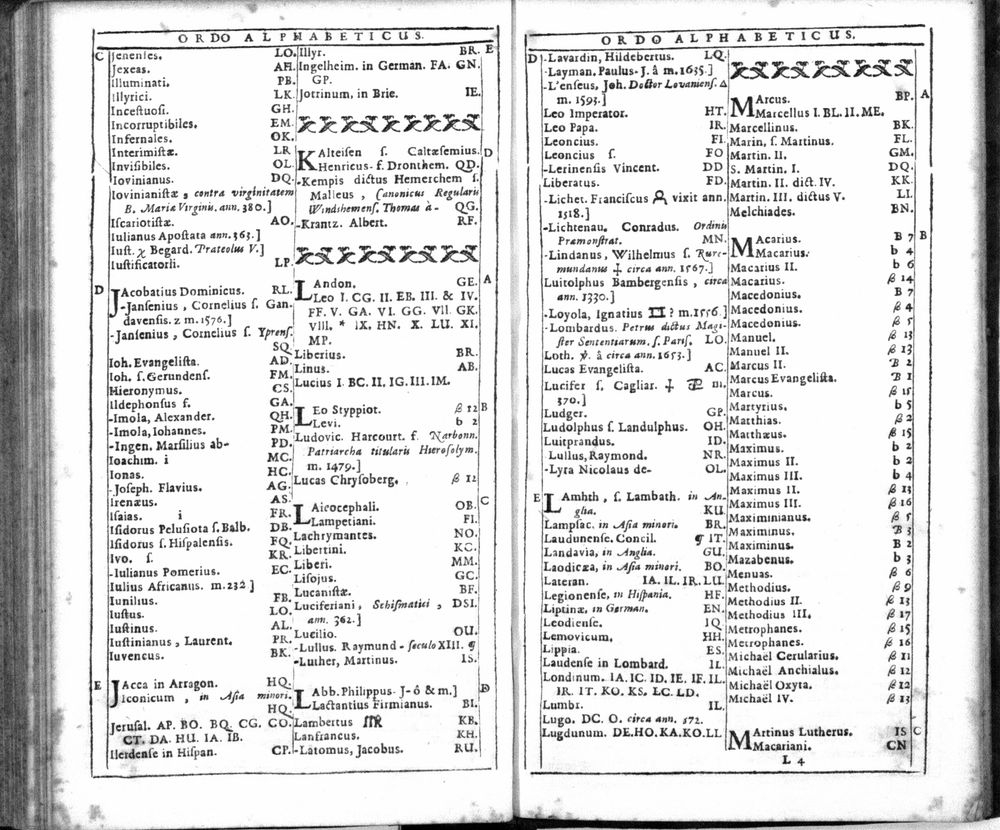 ORDO ALPHABETICUS.
C
Jenenses. LO.
Jexeas. AH.
Illuminati. PB.
Illyrici. LK.
Incestuosi. GH.
Incorruptibiles. EM.
Infernales. OK.
Interimistæ. LR
Invisibiles. OL
Iovinianus. DQ.
Iovinianistæ, contra virginitatem
B. Mariæ Virginis. ann. 380.]
Iscariotistæ. AO.
Iulianus Apostata ann. 363.]
Iust. χ Begard. Prateolus V.]
Iustificatorii. LP.
D
JAcobatius Dominicus. RL.
-Jansenius, Cornelius s. Gan.
davensis. z m. 1576.]
-Jansenius, Cornelius s. Yprens.
SQ.
Ioh. Evangelista. AD.
Ioh. s. Gerundens. FM.
Hieronymus. CS.
Ildephonsus s. GA.
-Imola, Alexander. QH.
-Imola, Iohannes. PM.
-Ingen, Marsilius ab- PD.
Ioachim. i MC.
Ionas. HC.
-Joseph. Flavius. AG.
Irenæus. AS.
Isaias. i FR.
Isidorus Pelusiota s. Balb. DB.
Isidorus s. Hispalensis. FQ.
Ivo. s. KR.
-Iulianus Pomerius. EC.
Iulius Africanus. m. 232]
Iunilius. FB.
Iustus. LO.
Iustinus. AL.
Iustinianus, Laurent. PR.
Iuvencus. BK.
E
JAcca in Arragon. HQ.
Iconicum, in Asia minori.
HQ.
Jerusal. AP. BO. BQ. CG. CO.
CT. DA. HU. IA. IB.
Ilerdense in Hispan. CP.
Illyr. BR. E
Ingelheim. in German. FA. GN.
GP.
Jotrinum, in Brie. IE.
KAlteisen s. Caltæsemius. D
Henricus- f. Dronthem. QD.
-Kempis dictus Hemerchem s.
Malleus, Canonicus Regularis
Windshemens. Thomas à- QG.
-Krantz. Albert. RF.
LAndon. GE. A
Leo I. CG. II. EB. III. & IV.
FF. V. GA. VI. GG. VII. GK.
VIII. * IX. HN. X. LU. XI.
MP.
Liberius. BR.
Linus. AB.
Lucius I. BC. II, IG. III. IM.
LEo Styppiot. β 12 B
Levi. b 2
Ludovic. Harcourt. f. Narbonn.
Patriarcha titularis Hierosolym.
m. 1479.]
Lucas Chrysoberg. β 12
C
LAicocephali. OB.
Lampetiani. FI.
Lachrymantes. NO.
Libertini. KC.
Liberi. MM.
Lisojus. GC.
Lucanistæ. BF.
Luciferiani, Schismatici, DSI.
ann. 362.]
Lucilio. OU.
-Lullus. Raymond - seculo XIII. ¶
-Luther, Martinus. IS.
D
LAbb. Philippus. J- ô & m.]
Lactantius Firmianus. BI.
Lambertus KB.
Lanfrancus. KH.
-Latomus, Jacobus. RU.
ORDO ALPHABETICUS.
D -Lavardin, Hildebertus. LQ.
-Layman. Paulus- J. â m. 1635.]
-L'enseus, Joh. Doctor Lovaniens. Δ
m. 1593.]
Leo Imperator. HT.
Leo Papa. IR.
Leoncius. FI.
Leoncius s. FO
-Lerinensis Vincent. DD
Liberatus. FD.
-Lichet. Franciscus vixit ann.
1518.]
-Lichtenau, Conradus. Ordinis
Præmonstrat. MN.
-Lindanus, Wilhelmus s. Rure-
mundanus ‡ circa ann. 1567.]
Luitolphus Bambergensis, circa
ann. 1330.]
-Loyola, Ignatius ♊ ? m. 1556.]
-Lombardus. Petrus dictus Magi-
ster Sententiarum. s. Paris. LO.
Loth. â circa ann. 1653.]
Lucas Evangelista. AC.
Lucifer s. Cagliar. ‡ m.
370.]
Ludger. GP.
Ludolphus s. Landulphus. OH.
Luitprandus. ID.
Lullus, Raymond. NR.
-Lyra Nicolaus de- OL.
E
LAmhth, s. Lambath. in An-
glia. KU.
Lampsac. in Asia minori. BR.
Laudunense. Concil. ¶ IT.
Landavia, in Anglia. GU.
Laodicæa, in Asia minori. BO.
Lateran. IA. IL. IR. LU.
Legionense, in Hispania. HF.
Liptinæ, in German. EN.
Leodiense. IQ
Lemovicum. HH.
Lippia. ES.
Laudense in Lombard. IL.
Londinum. IA. IC. ID. IE. IF. IL.
IR. IT. KO. KS. LC. LD.
Lumbr. IL.
Lugo. DC. O. circa ann. 572.
Lugdunum. DE. HO. KA. KO. LL
MArcus. BP. A
Marcellus I. BL. II. ME.
Marcellinus. BK.
Marin, s. Martinus. FL.
Martin. II. GM.
S. Martin. I. DQ.
Martin. II. dict. IV. KK.
Martin. III. dictus V. LI.
Melchiades. BN.
MAcarius. B 7 B
Macarius. b 4
Macarius II. b 6
Macarius. β 14
Macedonius. B 7
Macedonius. β 4
Macedonius. β 5
Manuel. β 13
Manuel II. β 13
Marcus II. B 2
Marcus Evangelista. B 1
Marcus. β 15
Martyrius. b 5
Matthias. β 2
Matthæus. β 15
Maximus. b 2
Maximus II. b 2
Maximus III. b 4
Maximus II. β 13
Maximus III. β 16
Maximinianus. β 5
Maximinus. B 3
Maximinus. B 2
Mazabenus. b 3
Menuas. β 6
Methodius. β 9
Methodius II. β 13
Methodius III. β 17
Metrophanes. β 15
Metrophanes. β 16
Michaël Cerularius. β 11
Michaël Anchialus. β 12
Michaël Oxyta. β 12
Michaël IV. β 13
MArtinus Lutherus. IS C
Macariani. CN
L 4